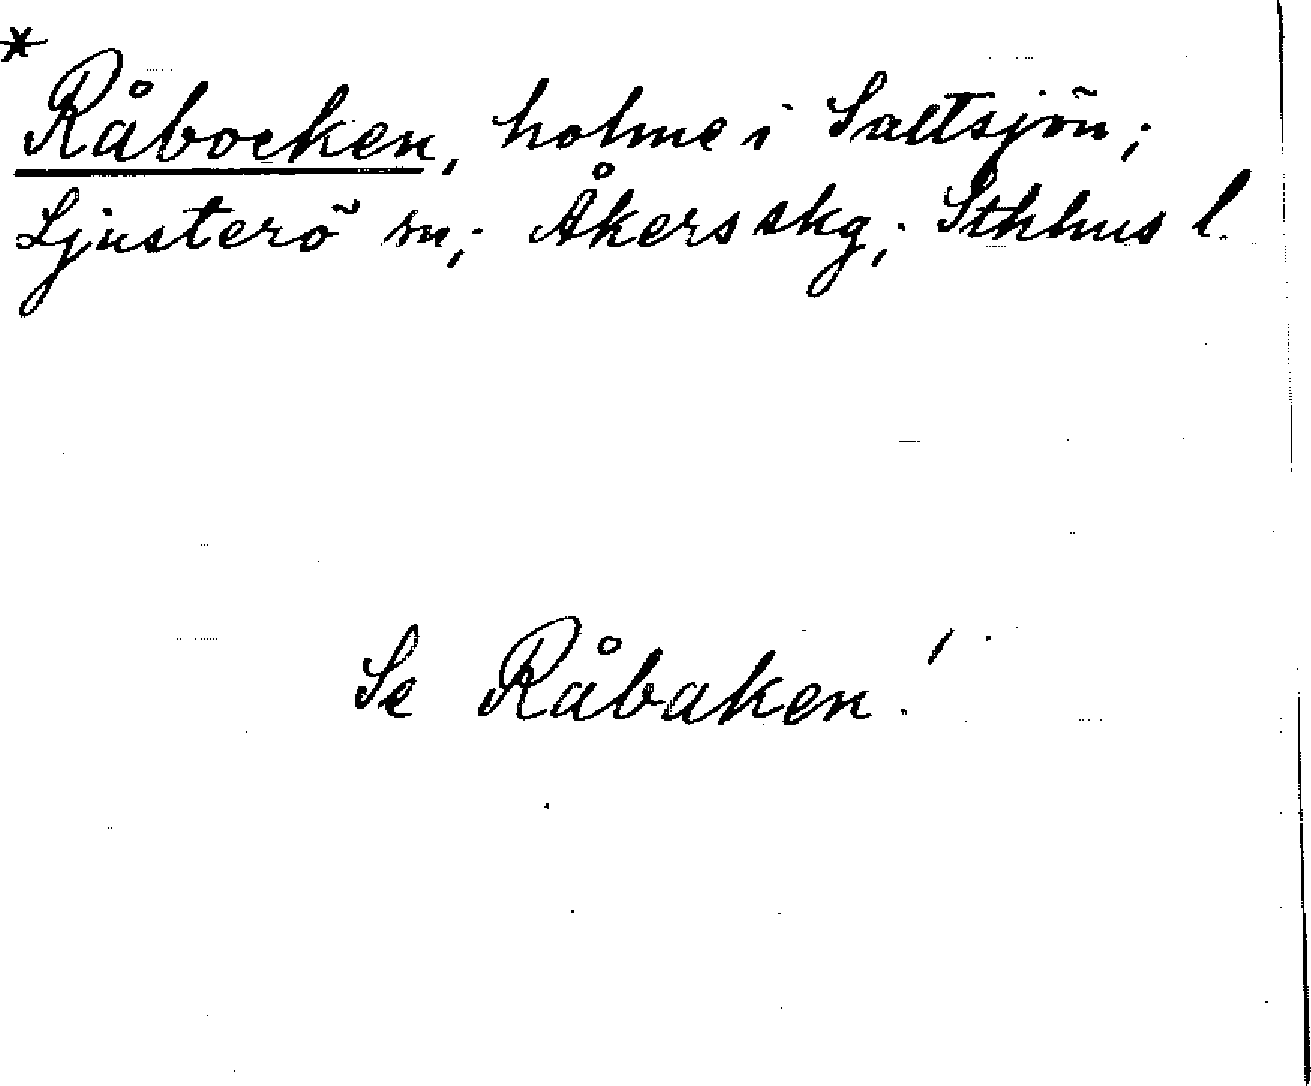 * Råbocken, holme i Saltsjön;
Ljusterö sn; Åkers skg; Sthhus l.
Se Råbaken!